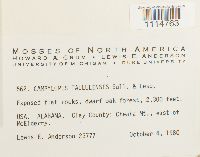 1114763
MOSSES OF NORTH AMERICA
HOWARD A. CRUM • LEWIS E. ANDERSON
UNIVERSITY OF MICHIGAN • DUKE UNIVERSITY
562. CAMPYLOPUS TALLULENSIS Sull. & Lesq.
Exposed flat rocks, dwarf oak forest, 2,300 feet.
USA. ALABAMA. Clay County: Cheaha Mt., east of
McElderry.
Lewis E. Anderson 23777
October 4, 1980